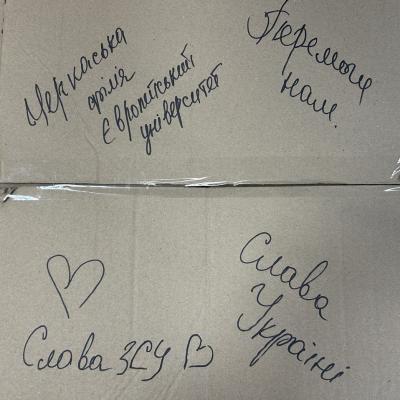 Черкаська
філія
Європейський
університет
Перемоги
нам.
Слава ЗСУ
Слава
Україні